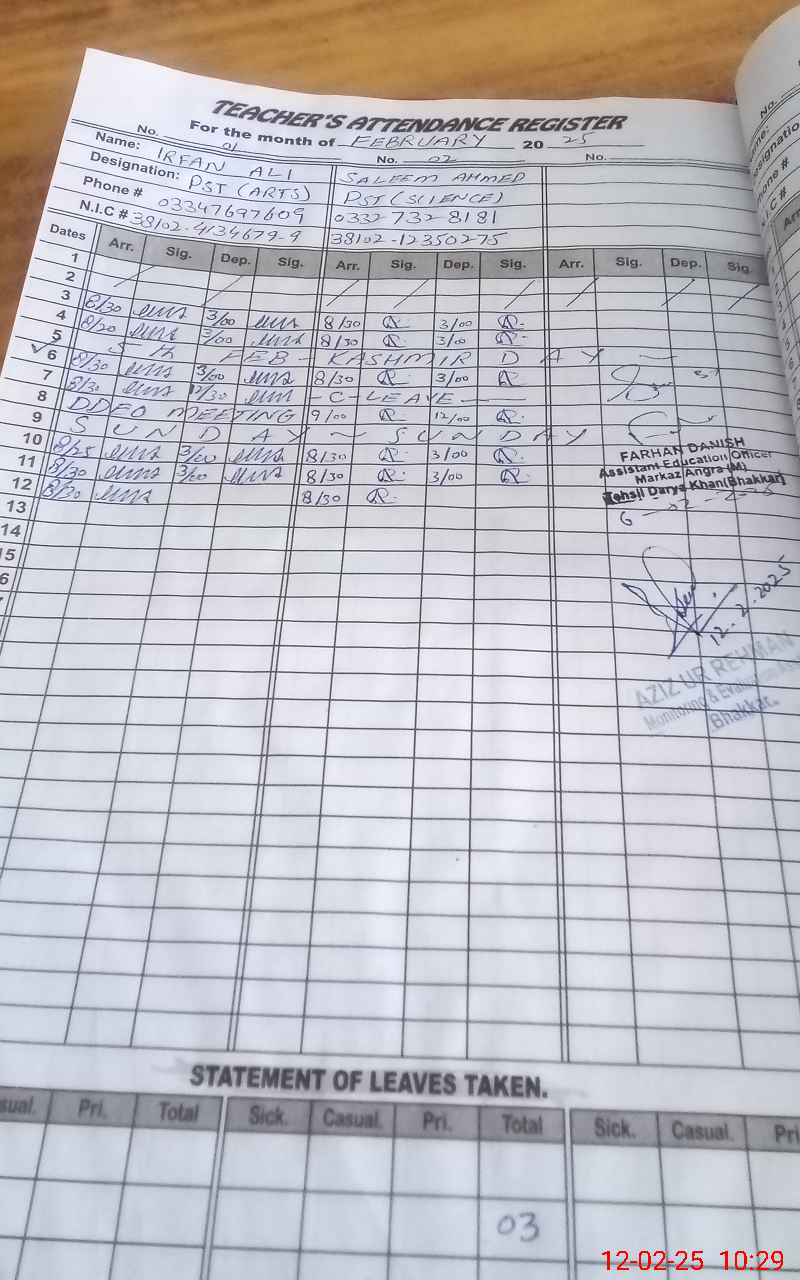 TEACHER'S ATTENDANCE REGISTER
For the month of FEBRUARY 20 25
No. 01 No. 02 No.
Name: IRFAN ALI SALEEM AHMED
Designation: PST (ARTS) PST (SCIENCE)
Phone # 03347697609 0332 732 8181
N.I.C # 38102-4134679-9 38102-12350275
Dates Arr. Sig. Dep. Sig. Arr. Sig. Dep. Sig. Arr. Sig. Dep. Sig.
1
2
3 8/30 3/00 8/30 3/00
4 8/20 3/00 8/30 3/00
5 5th FEB - KASHMIR DAY
6 8/30 3/00 8/30 3/00
7 8/30 /30 - C-LEAVE -
8 DDEO MEETING 9/00 12/00
9 SUNDAY ~ SUNDAY
10 8/25 3/00 8/30 3/00
11 8/30 3/00 8/30 3/00
12 8/30 8/30
13
14
15
6
FARHAN DANISH
Assistant Education Officer
Markaz Angra (M)
Tehsil Darya Khan (Bhakkar)
12-2-2025
AZIZ UR REHMAN
Monitoring &
Bhakkar.
STATEMENT OF LEAVES TAKEN.
sual. Pri. Total Sick. Casual. Pri. Total Sick. Casual. Pri
03
12-02-25 10:29